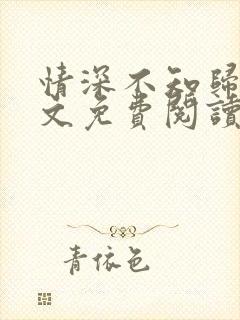 情深不知歸
文免費閱讀
青依色